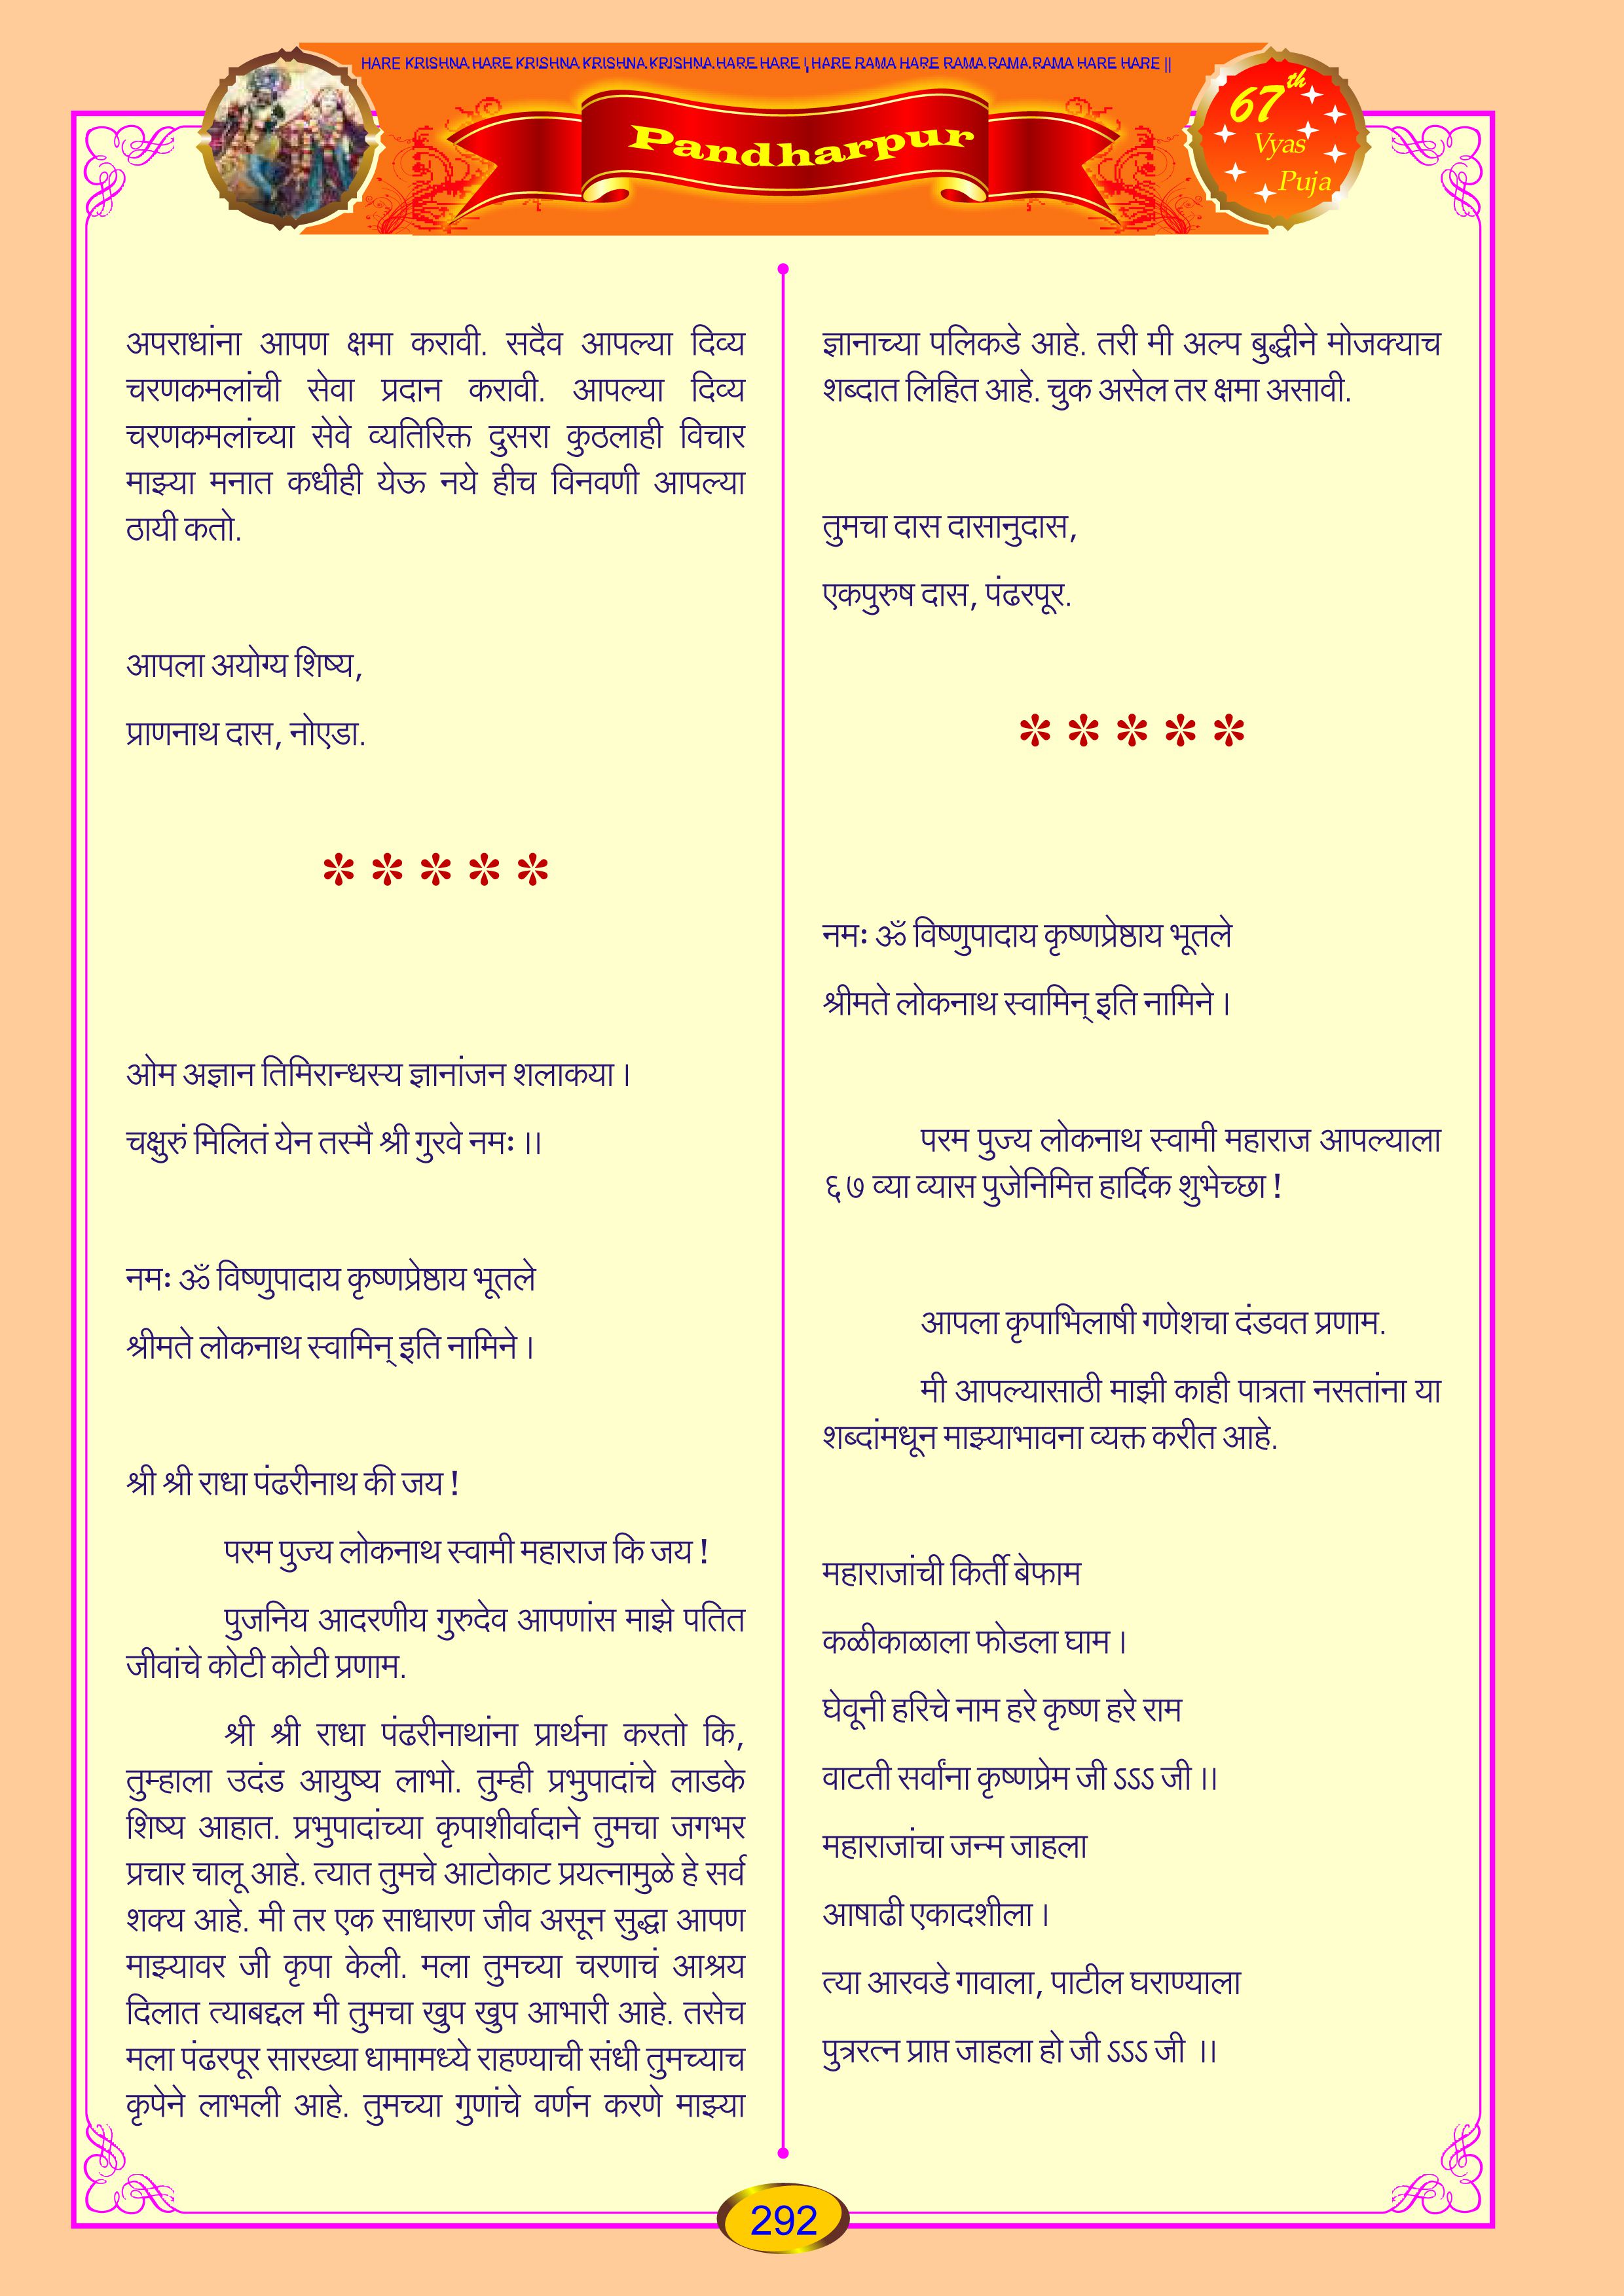 HARE KRISHNA HARE KRISHNA KRISHNA KRISHNA HARE HARE | HARE RAMA HARE RAMA RAMA RAMA HARE HARE ||
Pandharpur
67th
Vyas
Puja
अपराधांना आपण क्षमा करावी. सदैव आपल्या दिव्य
चरणकमलांची सेवा प्रदान करावी. आपल्या दिव्य
चरणकमलांच्या सेवे व्यतिरिक्त दुसरा कुठलाही विचार
माझ्या मनात कधीही येऊ नये हीच विनवणी आपल्या
ठायी कतो.
आपला अयोग्य शिष्य,
प्राणनाथ दास, नोएडा.
*****
ओम अज्ञान तिमिरान्धस्य ज्ञानांजन शलाकया ।
चक्षुरुं मिलितं येन तस्मै श्री गुरवे नमः ।।
नमः ॐ विष्णुपादाय कृष्णप्रेष्ठाय भूतले
श्रीमते लोकनाथ स्वामिन् इति नामिने ।
श्री श्री राधा पंढरीनाथ की जय !
परम पुज्य लोकनाथ स्वामी महाराज कि जय !
पुजनिय आदरणीय गुरुदेव आपणांस माझे पतित
जीवांचे कोटी कोटी प्रणाम.
श्री श्री राधा पंढरीनाथांना प्रार्थना करतो कि,
तुम्हाला उदंड आयुष्य लाभो. तुम्ही प्रभुपादांचे लाडके
शिष्य आहात. प्रभुपादांच्या कृपाशीर्वादाने तुमचा जगभर
प्रचार चालू आहे. त्यात तुमचे आटोकाट प्रयत्नामुळे हे सर्व
शक्य आहे. मी तर एक साधारण जीव असून सुद्धा आपण
माझ्यावर जी कृपा केली. मला तुमच्या चरणाचं आश्रय
दिलात त्याबद्दल मी तुमचा खुप खुप आभारी आहे. तसेच
मला पंढरपूर सारख्या धामामध्ये राहण्याची संधी तुमच्याच
कृपेने लाभली आहे. तुमच्या गुणांचे वर्णन करणे माझ्या
ज्ञानाच्या पलिकडे आहे. तरी मी अल्प बुद्धीने मोजक्याच
शब्दात लिहित आहे. चुक असेल तर क्षमा असावी.
तुमचा दास दासानुदास,
एकपुरुष दास, पंढरपूर.
*****
नमः ॐ विष्णुपादाय कृष्णप्रेष्ठाय भूतले
श्रीमते लोकनाथ स्वामिन् इति नामिने ।
परम पुज्य लोकनाथ स्वामी महाराज आपल्याला
६७ व्या व्यास पुजेनिमित्त हार्दिक शुभेच्छा !
आपला कृपाभिलाषी गणेशचा दंडवत प्रणाम.
मी आपल्यासाठी माझी काही पात्रता नसतांना या
शब्दांमधून माझ्याभावना व्यक्त करीत आहे.
महाराजांची किर्ती बेफाम
कळीकाळाला फोडला घाम ।
घेवूनी हरिचे नाम हरे कृष्ण हरे राम
वाटती सर्वांना कृष्णप्रेम जी ऽऽऽ जी ।।
महाराजांचा जन्म जाहला
आषाढी एकादशीला ।
त्या आरवडे गावाला, पाटील घराण्याला
पुत्ररत्न प्राप्त जाहला हो जी ऽऽऽ जी ।।
292